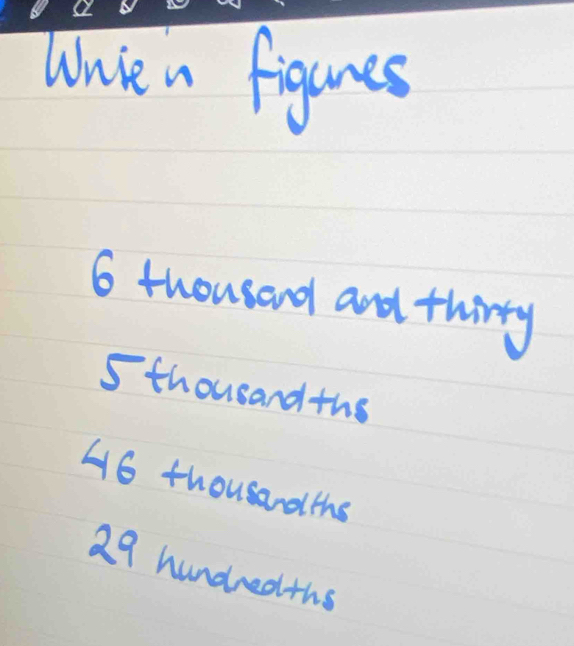 Write in figures
6 thousand and thirty
5 thousandths
46 thousandths
29 hundredths